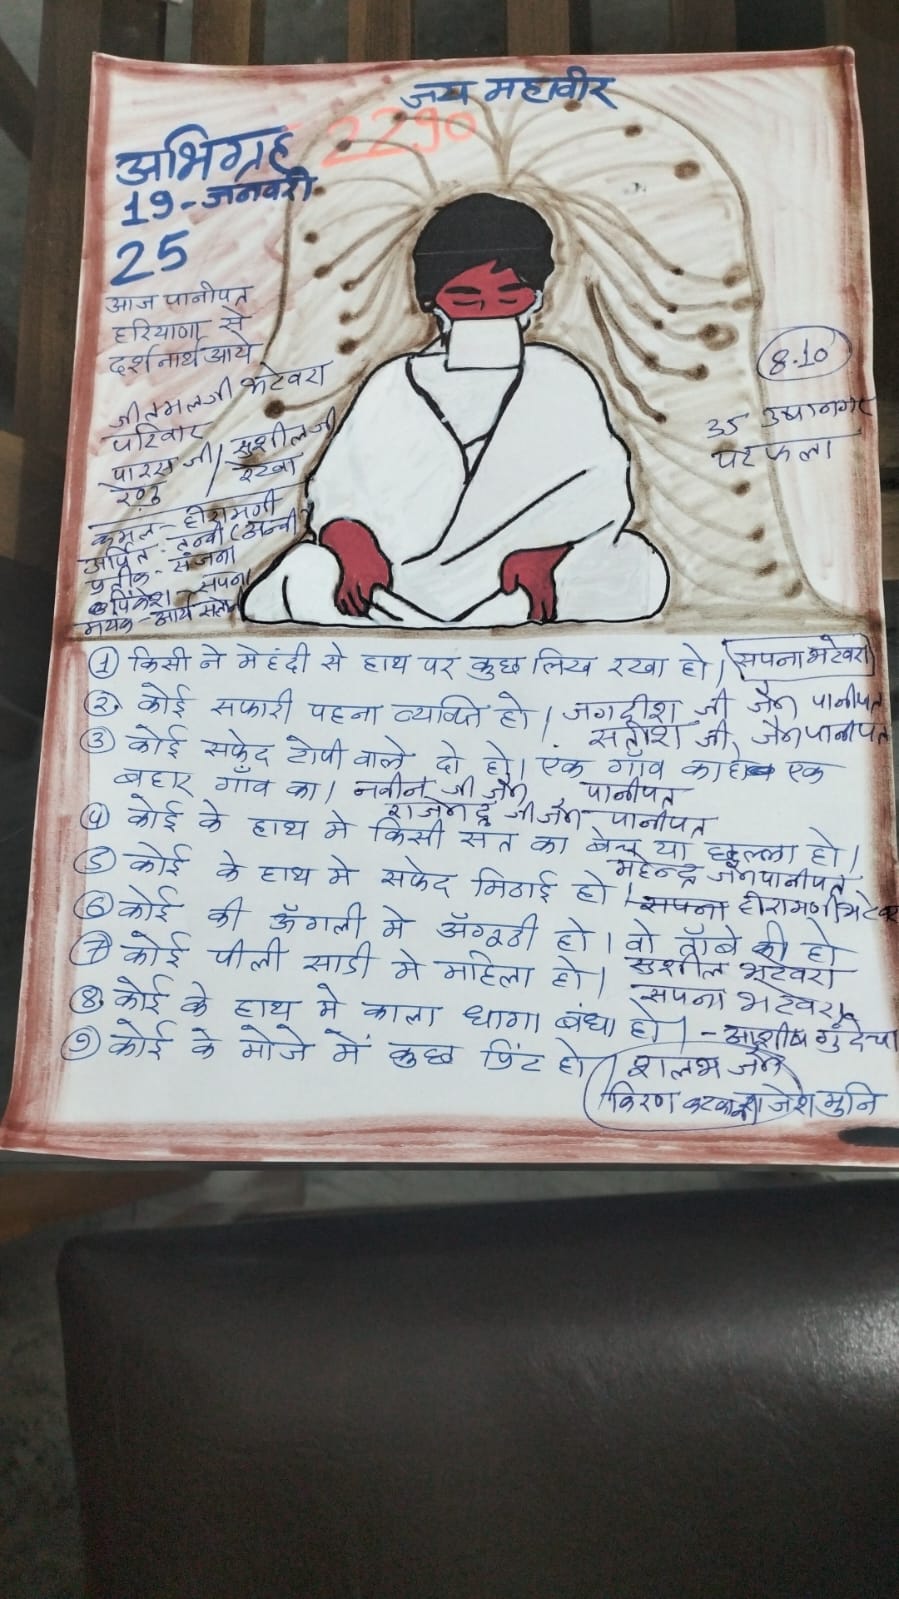 जय महावीर
अभिग्रह 2290
19-जनवरी
25
आज पानीपत
हरियाणा से
दर्शनार्थ आये
जीतमलजी भटेवरा
परिवार
पारस जी / सुशीलजी
रेणु / रेखा
कमल - हीरामणी
अर्पित - तन्वी (अन्वी)
प्रतीक - संजना
पिंकेश - सपना
मयंक - आर्य
8.10
उपानगर
पर फला
① किसी ने मेहंदी से हाथ पर कुछ लिख रखा हो। सपना भटेवरा
②. कोई सफारी पहना व्यक्ति हो। जगदीश जी जैन पानीपत
सतीश जी जैन पानीपत
③ कोई सफेद टोपी वाले दो हो। एक गाँव का हो एक
बहार गाँव का। नवीन जी जैन पानीपत
राजेन्द्र जी जैन पानीपत
④ कोई के हाथ मे किसी संत का बेच या छल्ला हो।
महेन्द्र जैन पानीपत
⑤ कोई के हाथ मे सफेद मिठाई हो। सपना हीरामणी भटेवरा
⑥ कोई की अँगली मे अँगूठी हो। वो ताँबे की हो
सुशील भटेवरा
⑦ कोई पीली साडी मे महिला हो।
सपना भटेवरा
⑧. कोई के हाथ मे काला धागा बंधा हो। - आशीष गुंदेचा
⑨ कोई के मोजे में कुछ प्रिंट हो। शलभ जैन
किरण कटकानी राजेश मुनि